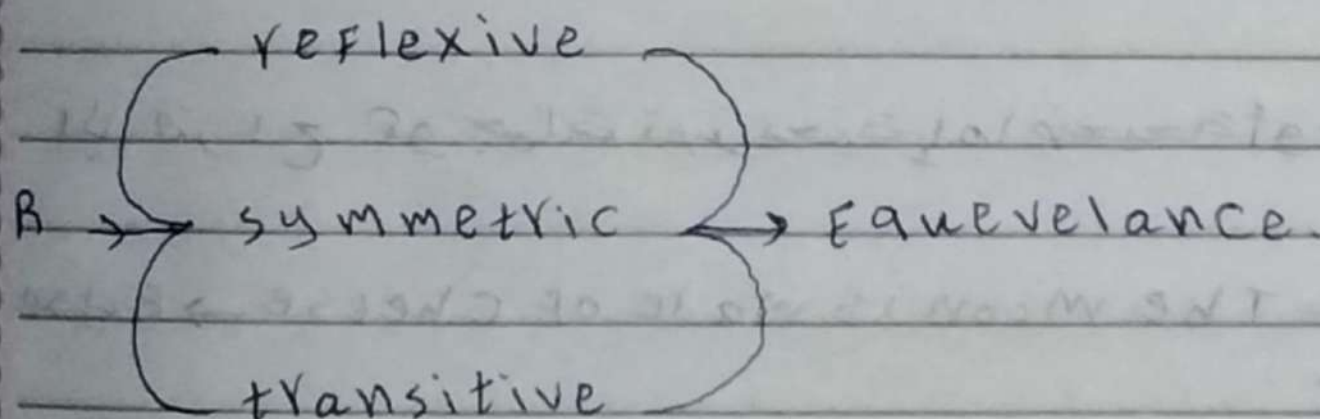 reflexive
R → symmetric → Equevelance.
transitive